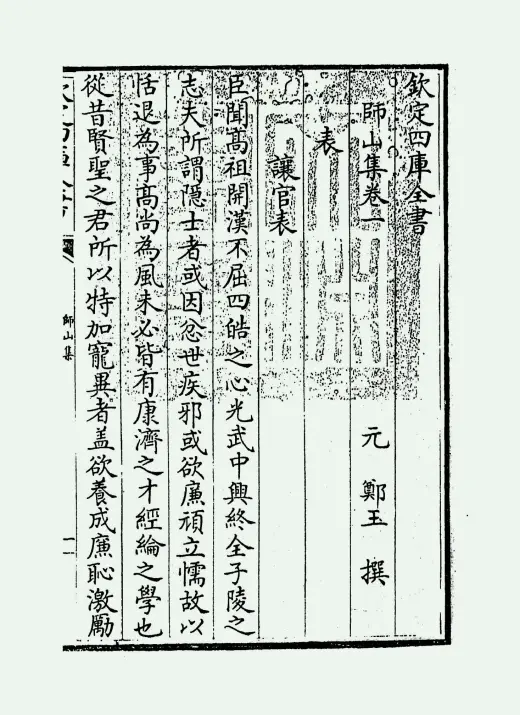 欽定四庫全書
師山集卷一
元 鄭玉 撰
表
讓官表
臣聞髙祖開漢不屈四皓之心光武中興終全子陵之
志夫所謂隠士者或因忿世疾邪或欲廉頑立懦故以
恬退為事髙尚為風未必皆有康濟之才經綸之學也
從昔賢聖之君所以特加寵異者盖欲養成廉恥激勵
師山集
一